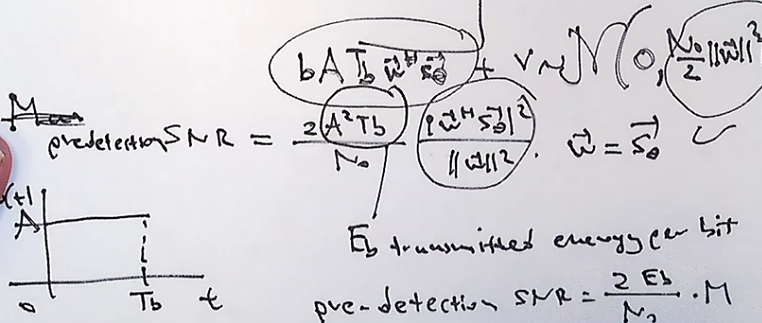 b A T_b \vec{w}^H \vec{s}_θ + v ~ N(0, N_0/2 ||\vec{w}||^2
M
predetection SNR = 2 A^2 T_b / N_0 |\vec{w}^H \vec{s}_θ|^2 / ||\vec{w}||^2 . \vec{w} = \vec{s}_θ
(t)
A
0 T_b t
E_b transmitted energy per bit
pre-detection SNR = 2 E_b / N_0 . M